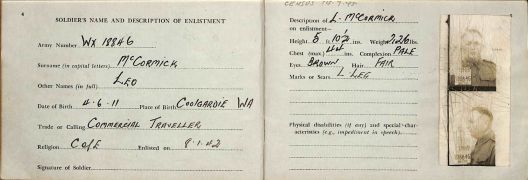 4
SOLDIER'S NAME AND DESCRIPTION OF ENLISTMENT
Army Number WX 18846
Surname (in capital letters) McCORMICK
Other Names (in full) LEO
Date of Birth 4-6-11 Place of Birth COOLGARDIE WA
Trade or Calling COMMERCIAL TRAVELLER
Religion C of E Enlisted on 8.1.42
Signature of Soldier
CENSUS
Description of L. McCORMICK
on enlistment—
Height 5 ft. 10½ ins. Weight 226 lbs.
Chest (max.) 44 ins. Complexion PALE
Eyes BROWN Hair FAIR
Marks or Scars L LEG
Physical disabilities (if any) and special char-
acteristics (e.g., impediment in speech)